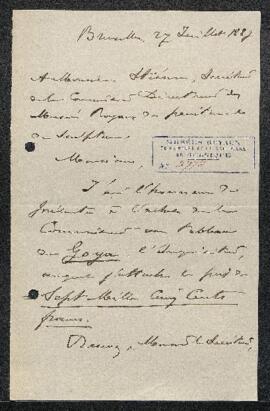 Bruxelles, 27 Juillet 188
A Monsieur Stiénon, Secrétaire
de la Commission Directrice des
Musées Royaux de peinture et
de sculpture
MUSÉES ROYAUX
DE BELGIQUE
N°
Monsieur,
J'ai l'honneur de
présenter à l'achat de la
Commission un tableau
de Goya, l'Inquisition,
auquel j'attache le prix de
Sept Mille Cinq Cents
francs.
Recevez, Monsieur le Secrétaire,